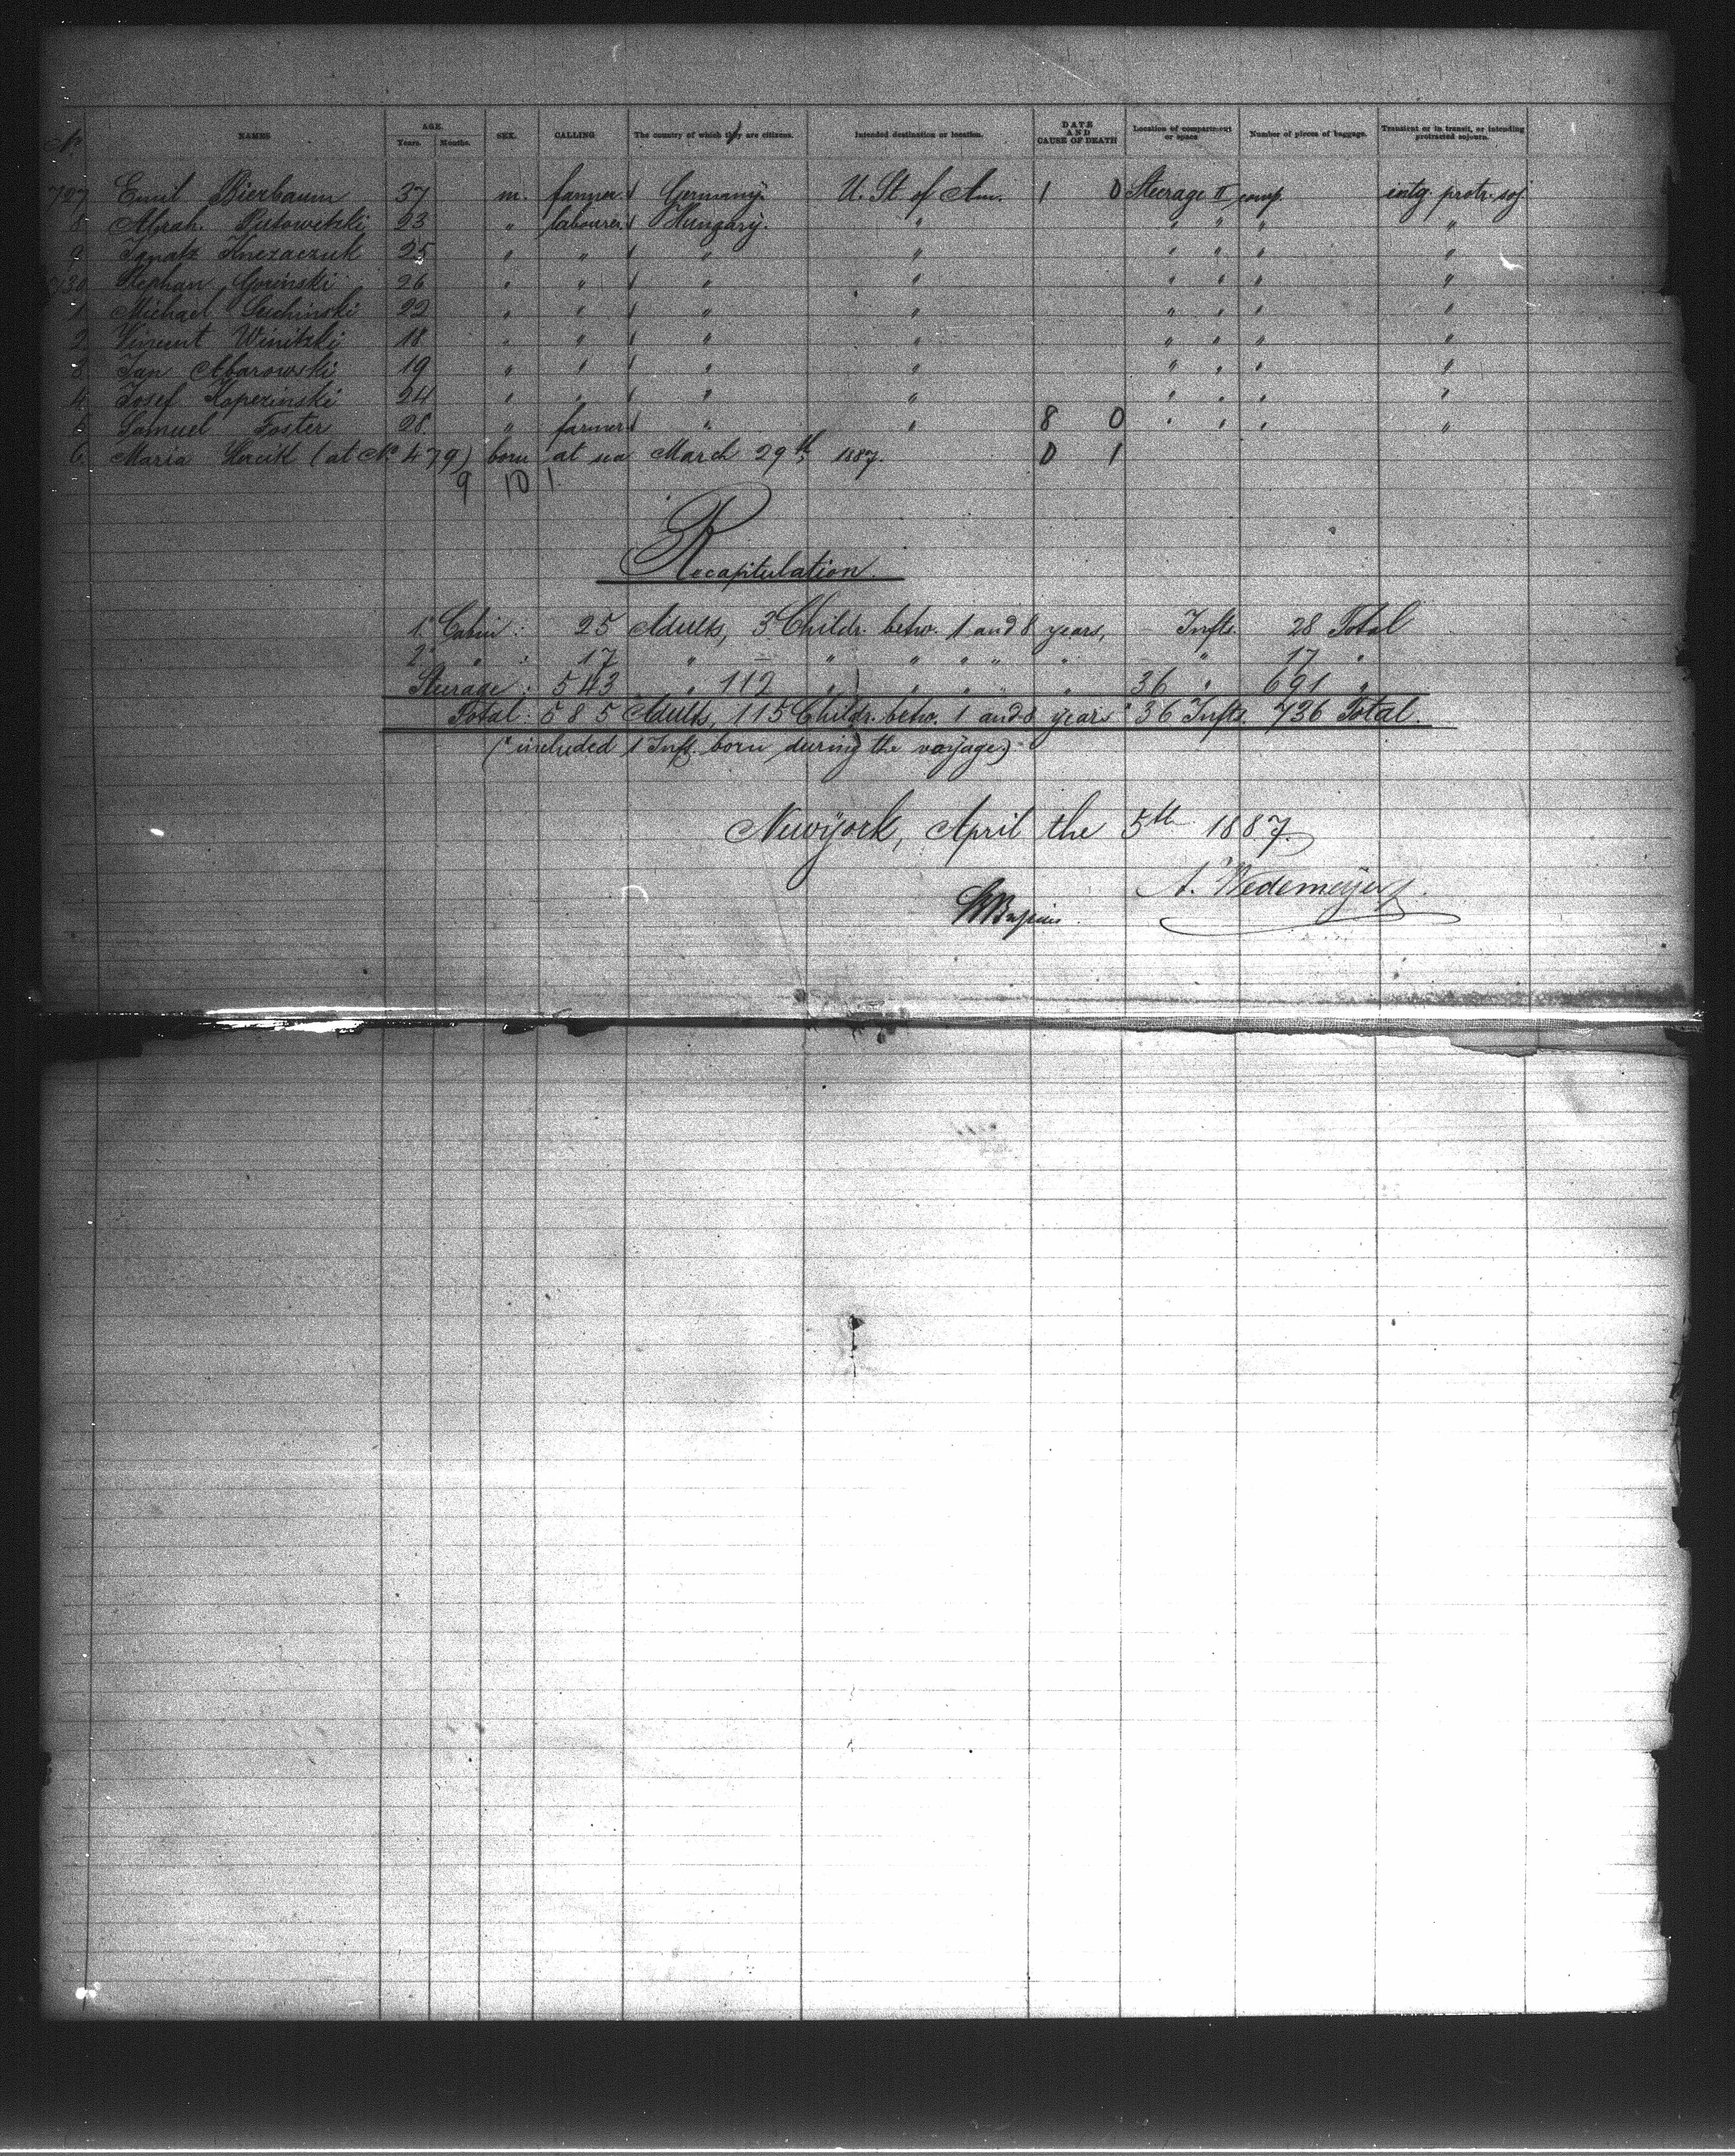 No NAMES AGE. Years. Months. SEX. CALLING The country of which they are citizens. Intended destination or location. DATE AND CAUSE OF DEATH Location of compartment or space Number of pieces of baggage. Transient or in transit, or intending protracted sojourn.
727 Emil Bierbaum 37 m. farmer Germany. U. St. of Am. 1 0 Steerage II comp. intg. protr. soj.
8 Abrah. 23 " labourer Hungary. " " " " "
9 Ignatz 25 " " " " " " " "
730 Stephan Gorinski 26 " " " " " " " "
1 Michael 22 " " " " " " " "
2 Vincent Winitzki 18 " " " " " " " "
3 Jan Abarowski 19 " " " " " " " "
4 Josef Kopezinski 24 " " " " " " " "
5 Samuel Foster 28 " farmer " " 8 0 " " " "
6. Maria (at No 479) born at sea March 29th 1887. 0 1
9 10 1.
Recapitulation.
1st Cabin : 25 Adults, 3 Childr. betw. 1 and 8 years, — Infts. 28 Total
2d " : 17 " — " " " " " " 17 "
Steerage : 543 " 112 " " " " " 36 " 691 "
Total : 585 Adults, 115 Childr. betw. 1 and 8 years * 36 Infts. 736 Total.
(* included 1 Inft. born during the voyage.)
Newyork, April the 5th 1887.
A. Wedemeyer